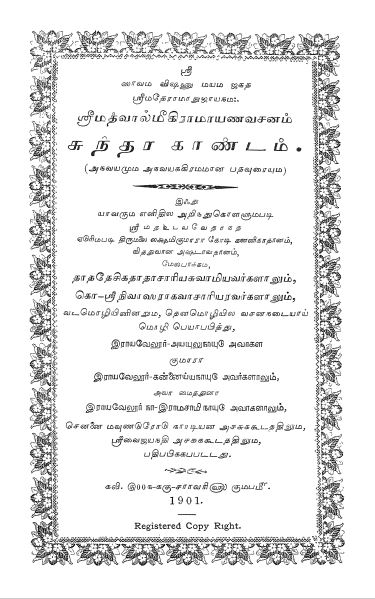 ஸ்ரீ
ஸர்வம் விஷ்ணு மயம் ஜகத்
ஸ்ரீமதேராமாநுஜாயநம:
ஸ்ரீமத்வால்மீகிராமாயணவசனம்
சுந்தர காண்டம்.
(அந்வயமும் அந்வயக்கிரமமான பதவுரையும்)
இஃது
யாவரும் எளிதில் அறிந்துகொள்ளும்படி
ஸ்ரீ மத் உபய வே தாந்த
ஏடூரிம்படி திருமலை லக்ஷ்மிகுமாரா கோடி கன்னிகாதானம்,
வித்துவான் அஷ்டாவதானம்,
மேல்பாக்கம்,
தாத்தேசிகதாதாசாரியசுவாமியவர்களாலும்,
கொ-ஸ்ரீநிவாஸராகவாசாரியரவர்களாலும்,
வடமொழியினின்றும், தென்மொழியில் வசனநடையாய்
மொழி பெயர்ப்பித்து,
இராயவேலூர்-அப்யலுநாயுடு அவர்கள்
குமாரர்
இராயவேலூர்-கன்னைய்யநாயுடு அவர்களாலும்,
அவர் மைத்துனர்
இராயவேலூர் நா-இராமசாமி நாயுடு அவர்களாலும்,
சென்னை மவுண்ட்ரோட் கார்டியன் அச்சுக்கூடத்திலும்,
ஸ்ரீவைஜயந்தி அச்சுக்கூடத்திலும்,
பதிப்பிக்கப்பட்டது.
1901.
Registered Copy Right.